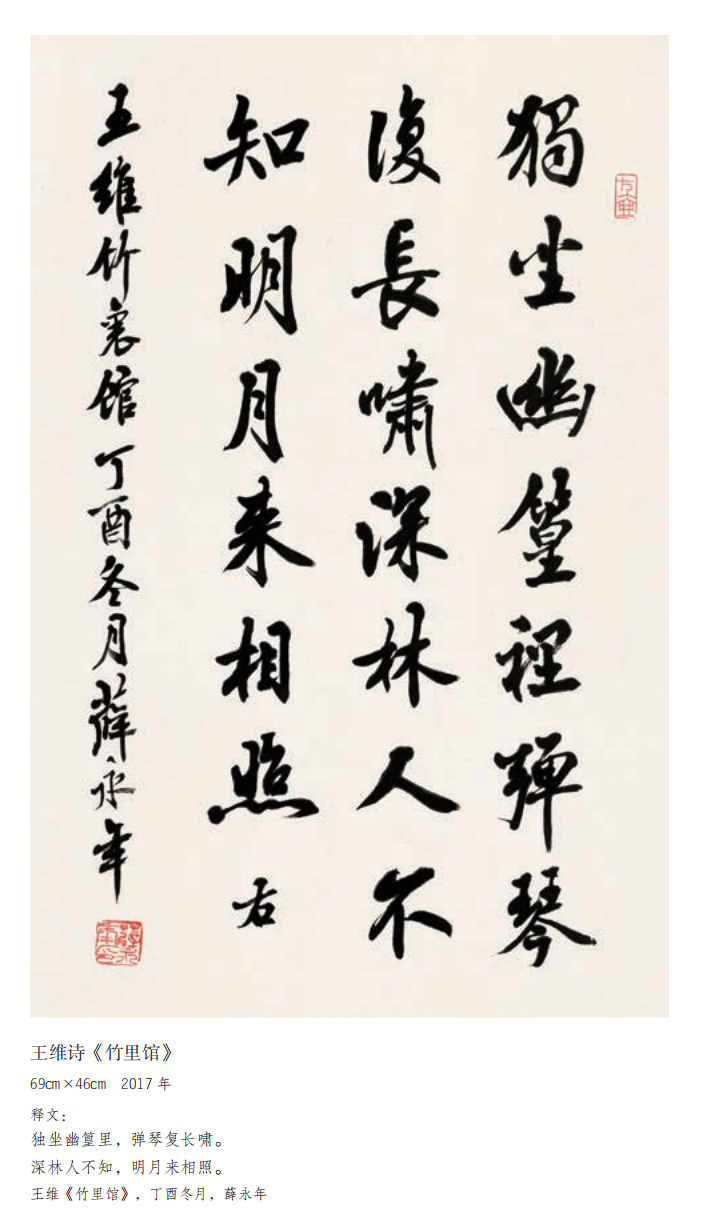 獨坐幽篁裡彈琴
復長嘯深林人不
知明月来相照右
王維竹裏館丁酉冬月薛永年
王维诗《竹里馆》
69cm×46cm 2017 年
释文：
独坐幽篁里，弹琴复长啸。
深林人不知，明月来相照。
王维《竹里馆》，丁酉冬月，薛永年